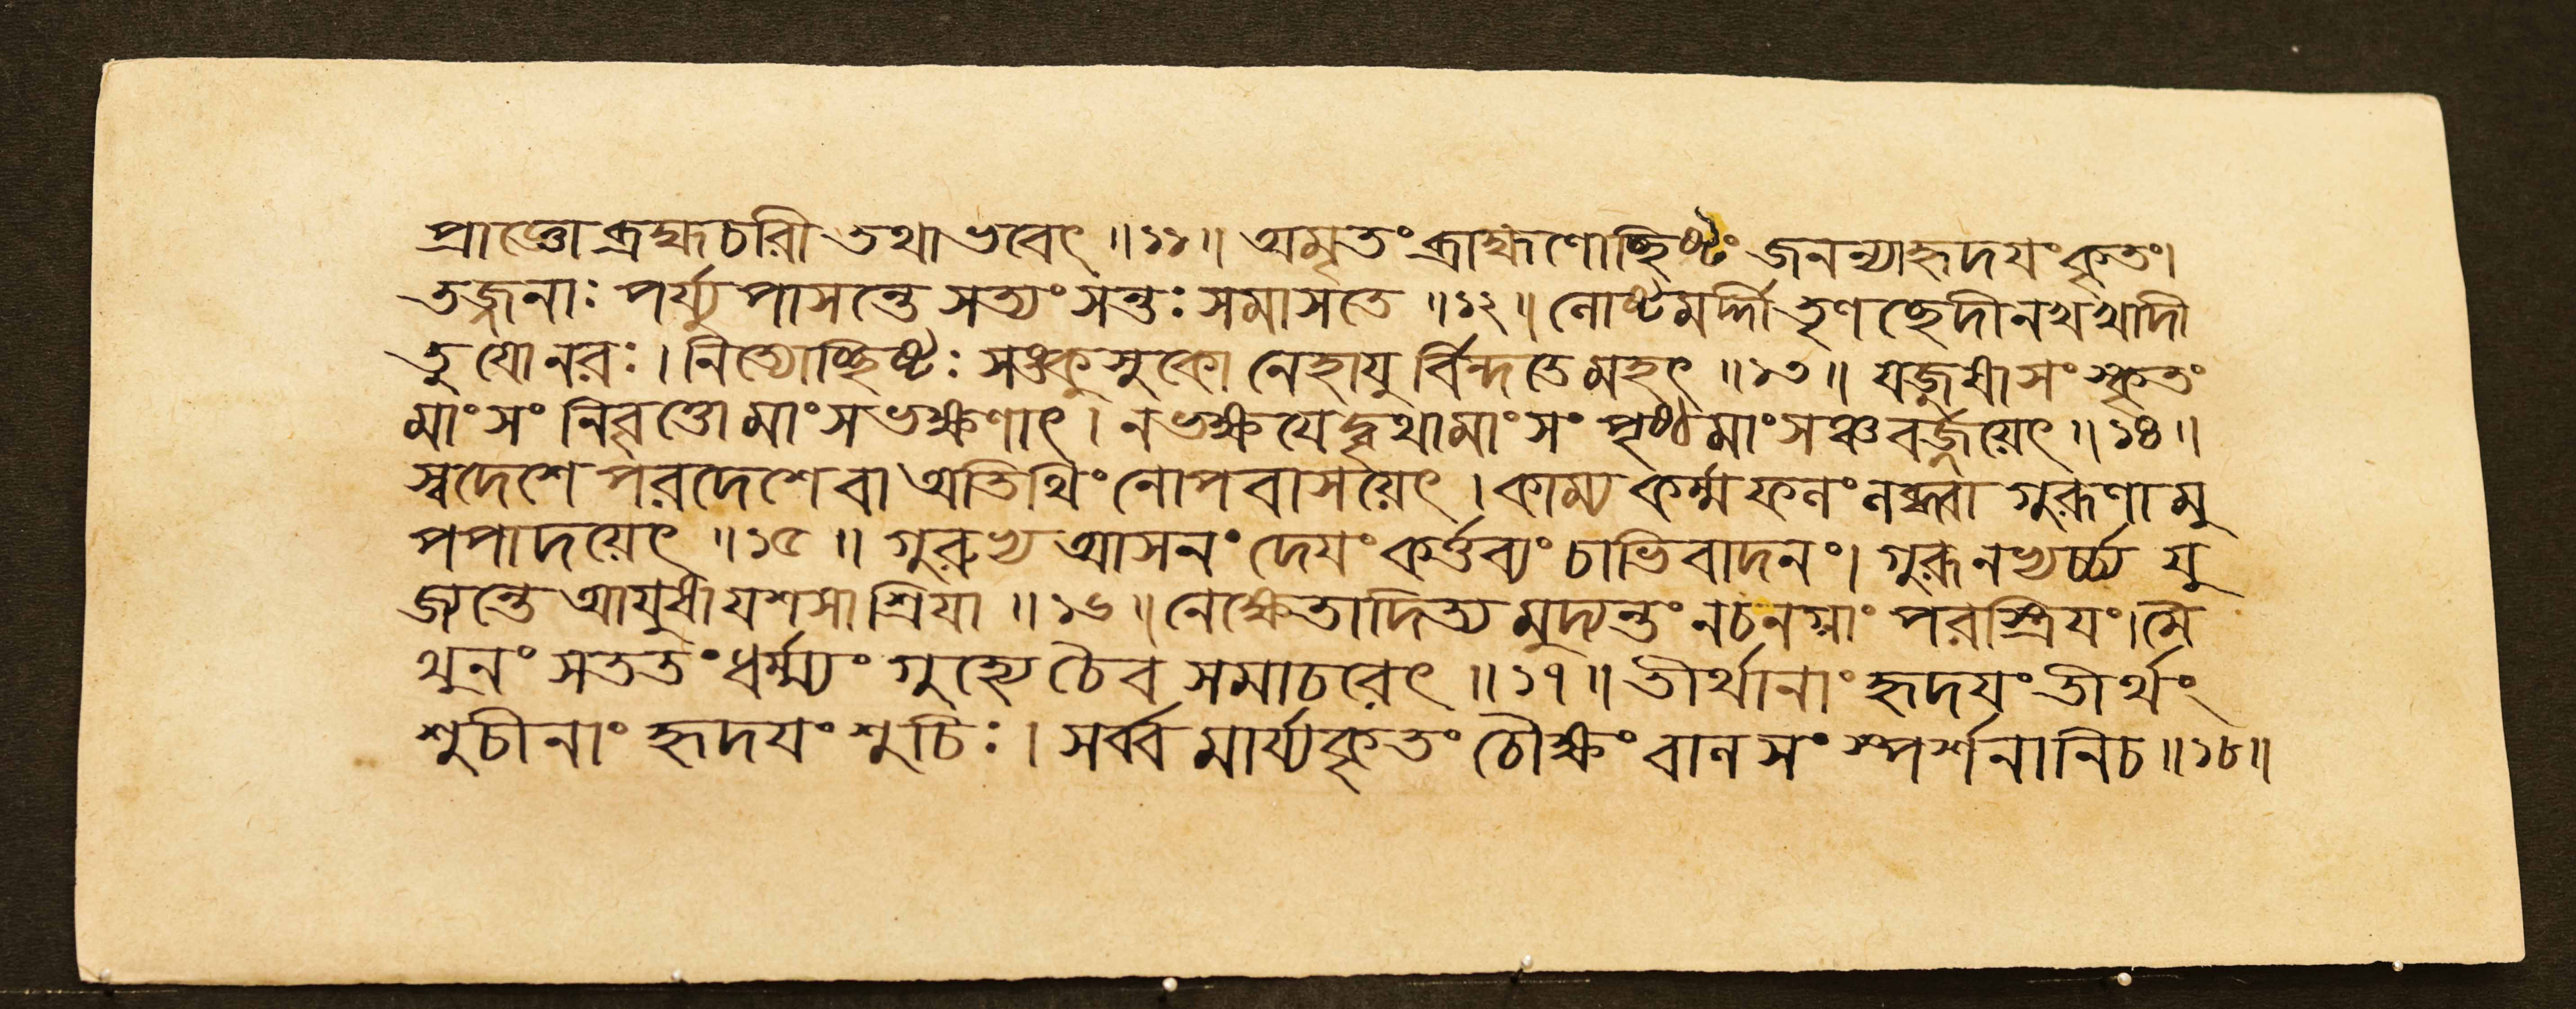 প্রাপ্তো ব্রহ্মচরী তথা ভবেৎ ॥১১॥ অমৃতং ব্রাহ্মণোচ্ছিষ্টং জনন্যাহৃদযং কৃতং।
তজ্জনাঃ পর্য্যুপাসন্তে সত্যং সন্তঃ সমাসতে ॥১২॥ লোষ্টমর্দ্দী তৃণছেদী নখখাদী
তু যো নরঃ। নিত্যোচ্ছিষ্টঃ সঙ্কুসুকো নেহাযুর্বিন্দতে মহৎ ॥১৩॥ যজুষা সংস্কৃতং
মাংসং নিবৃত্তো মাংসভক্ষণাৎ। ন ভক্ষযেদ্বৃথামাংসং পৃষ্ঠমাংসঞ্চ বর্জ্জয়েৎ ॥১৪॥
স্বদেশে পরদেশে বা অতিথিং নোপবাসয়েৎ। কাম্য কর্ম্মফলং লব্ধ্বা গুরূণামু
পপাদয়েৎ ॥১৫॥ গুরুভ্য আসনং দেযং কর্ত্তব্যং চাভিবাদনং। গুরূনভ্যর্চ্চ্য যু
জ্যন্তে আযুষা যশসা শ্রিযা ॥১৬॥ নেক্ষেতাদিত্যমুদ্যন্তং ন চ নগ্নাং পরস্ত্রিযং। মৈ
থুনং সততং ধর্ম্ম্যং গুহ্যে চৈব সমাচরেৎ ॥১৭॥ তীর্থানাং হৃদযং তীর্থং
শুচীনাং হৃদযং শুচিঃ। সর্ব্বমার্য্যকৃতং চৌক্ষং বালসংস্পর্শনানি চ ॥১৮॥